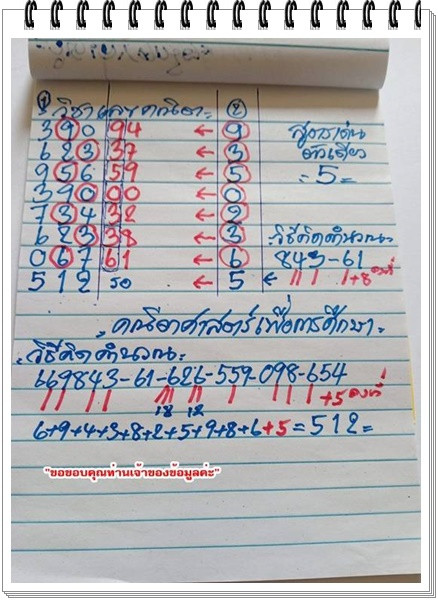 ① วิชาเลขคณิต = ②
390 94 ← 9
623 37 ← 3
956 59 ← 9
390 00 ← 0
734 32 ← 2
623 38 ← 3
067 61 ← 6
512 50 ← 5
สูตรเด่น
ตัวเดียว
= 5 =
วิธีคิดคำนวณ =
843-61
1+8 คงที่
คณิตศาสตร์เพื่อการศึกษา =
วิธีคิดคำนวณ =
669843-61-626-559-098-654
18 12
+5 คงที่
6+9+4+3+8+2+5+9+8+6+5=512=
"ขอขอบคุณท่านเจ้าของข้อมูลค่ะ"